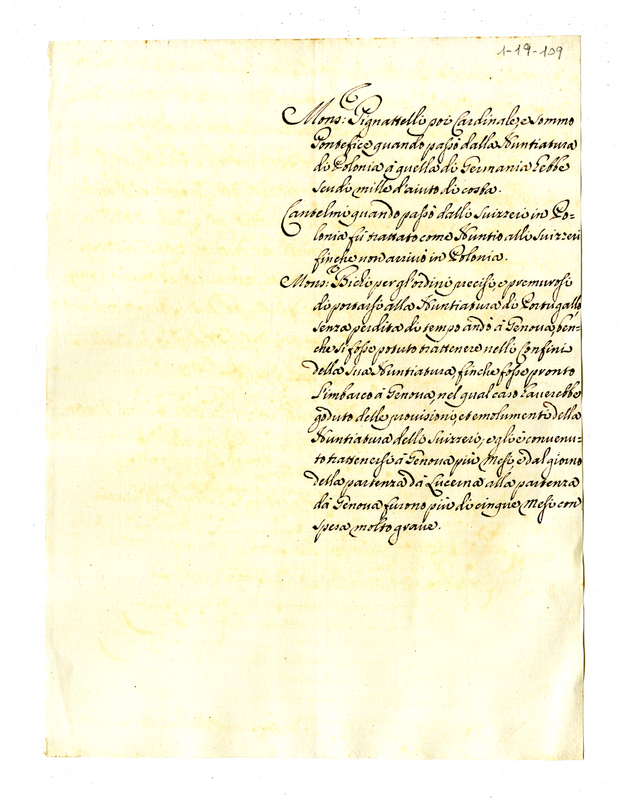 1-19-109
Mons: Pignattelli poi Cardinale, e sommo
Pontefice quando passò dalla Nuntiatura
di Polonia à quella di Germania hebbe
scudi mille d'aiuto di costa.
Cantelmi quando passò dalli Suizzeri in Po=
lonia fù trattato come Nuntio alli Suizzeri
finche non arrivò in Polonia.
Mons: Bichi per gl'ordini precisi, e premurosi
di portarsi alla Nuntiatura di Portugallo
senza perdita di tempo andò à Genova, ben=
che si fosse potuto trattenere nelli Confini
della sua Nuntiatura, finche fosse pronto
l'imbarco à Genova, nel qual caso haverebbe
goduto delle provisioni, et emolumenti della
Nuntiatura delli Suizzeri, e gl'è convenu=
to trattenersi à Genova più Mesi, e dal giorno
della partenza dà Lucerna alla partenza
dà Genova furono più di cinque Mesi con
spesa molto grave.